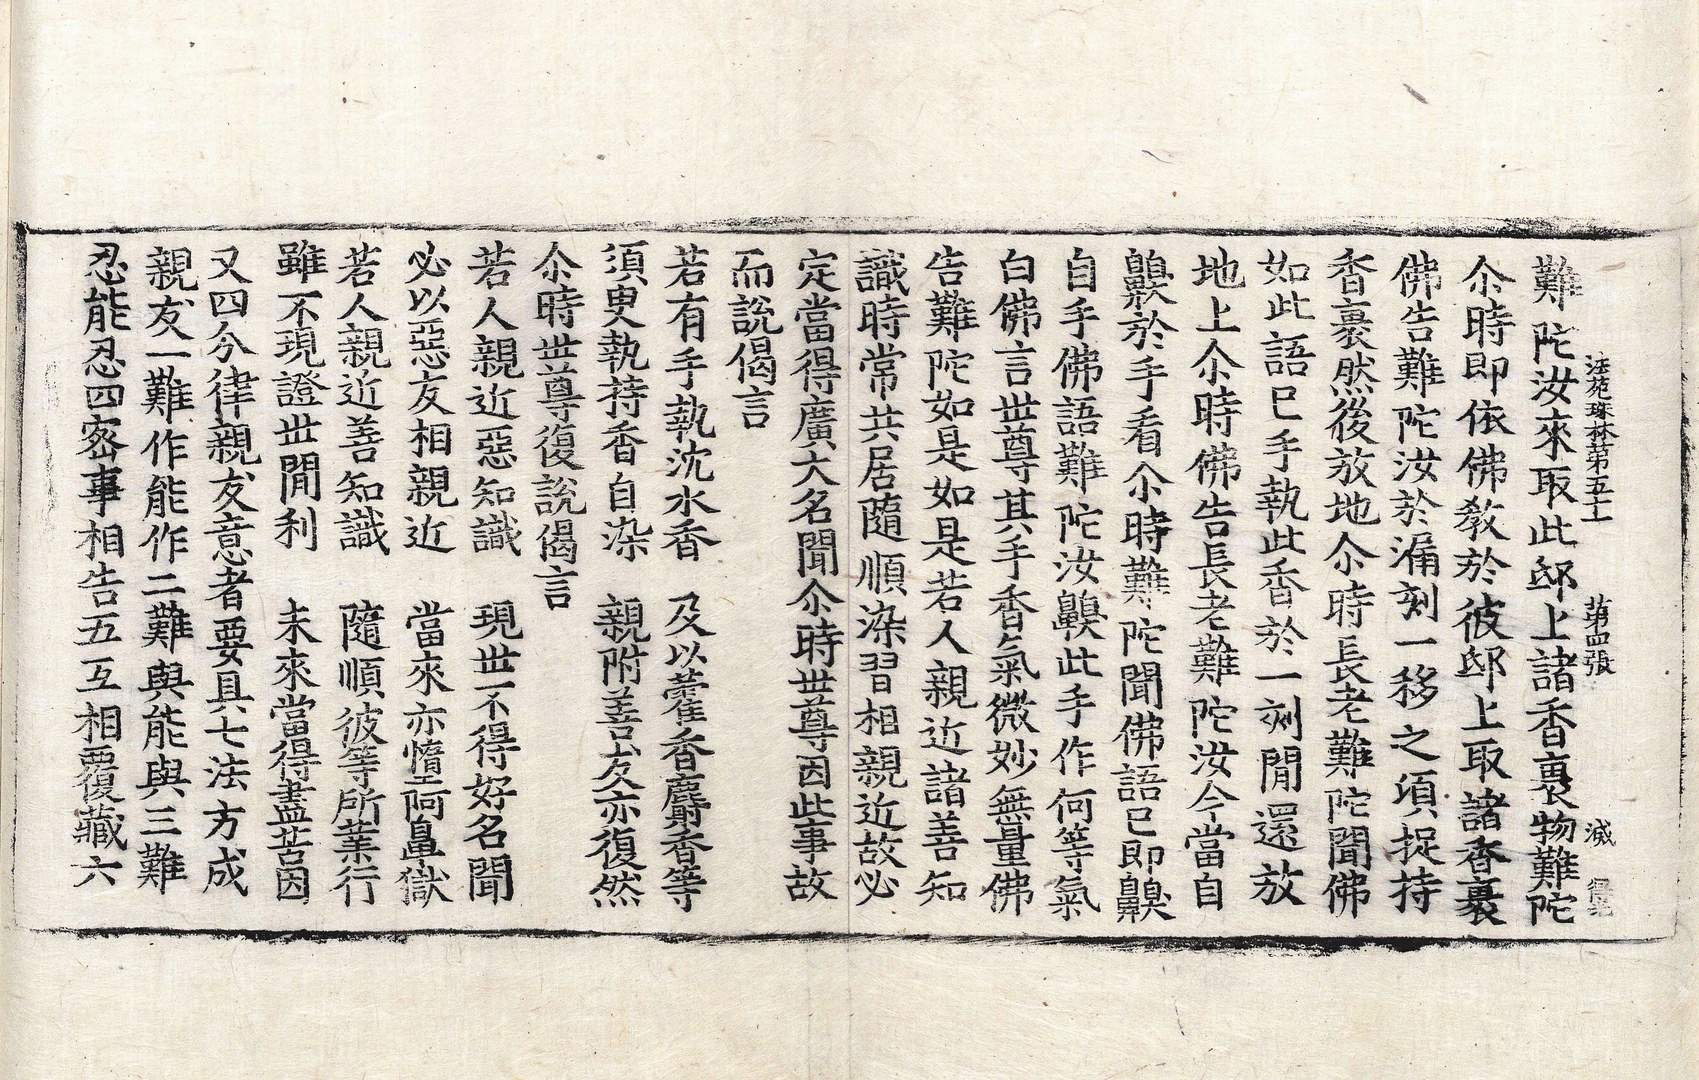 法苑珠林第五十一 第四張 滅
難陀汝來取此邸上諸香裹物難陀
尒時即依佛敎於彼邸上取諸香裹
佛告難陀汝於漏刻一移之頃捉持
香裹然後放地尒時長老難陀聞佛
如此語已手執此香於一刻閒還放
地上尒時佛告長老難陀汝今當自
齅於手看尒時難陀聞佛語已即齅
自手佛語難陀汝齅此手作何等氣
白佛言世尊其手香氣微妙無量佛
告難陀如是如是若人親近諸善知
識時常共居隨順染習相親近故必
定當得廣大名聞尒時世尊因此事故
而說偈言
若有手執沈水香　及以藿香麝香等
須臾執持香自染　親附善友亦復然
尒時世尊復說偈言
若人親近惡知識　現世不得好名聞
必以惡友相親近　當來亦墯阿鼻獄
若人親近善知識　隨順彼等所業行
雖不現證世閒利　未來當得盡苦因
又四分律親友意者要具七法方成
親友一難作能作二難與能與三難
忍能忍四密事相告五互相覆藏六